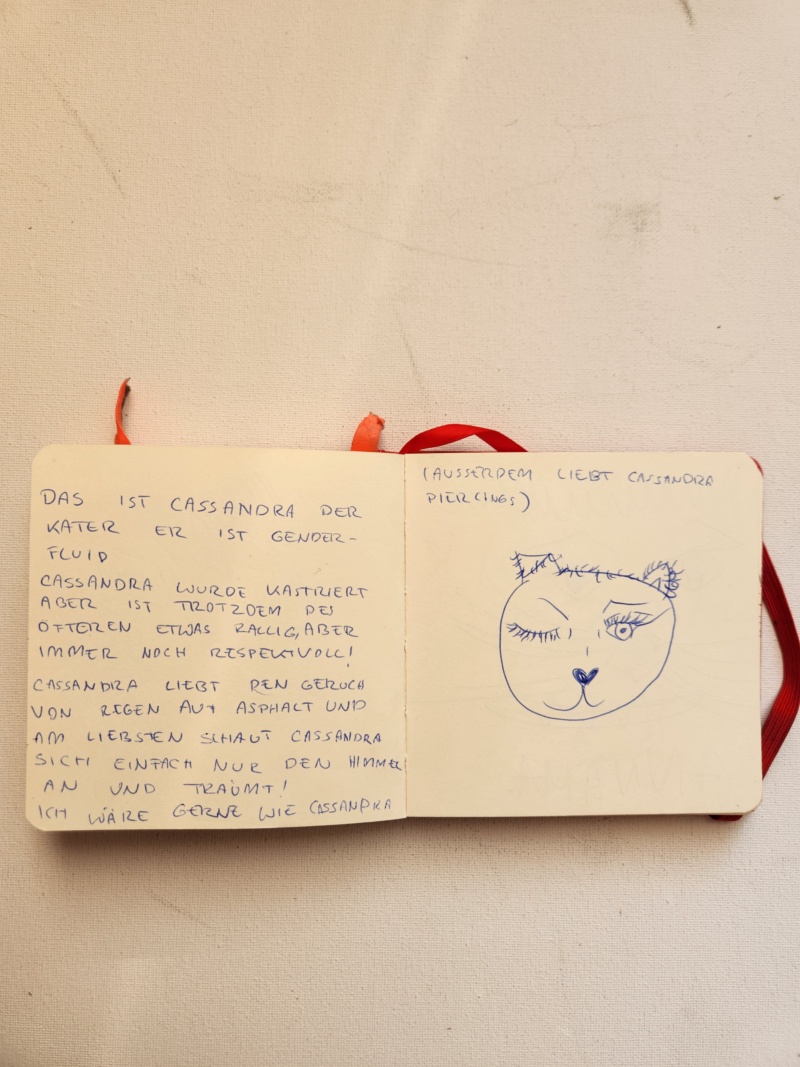 DAS IST CASSANDRA DER
KATER ER IST GENDER-
FLUID
CASSANDRA WURDE KASTRIERT
ABER IST TROTZDEM DES
ÖFTEREN ETWAS RALLIG, ABER
IMMER NOCH RESPEKTVOLL!
CASSANDRA LIEBT DEN GERUCH
VON REGEN AUF ASPHALT UND
AM LIEBSTEN SCHAUT CASSANDRA
SICH EINFACH NUR DEN HIMMEL
AN UND TRÄUMT!
ICH WÄRE GERNE WIE CASSANDRA
(AUSSERDEM LIEBT CASSANDRA
PIERCINGS)